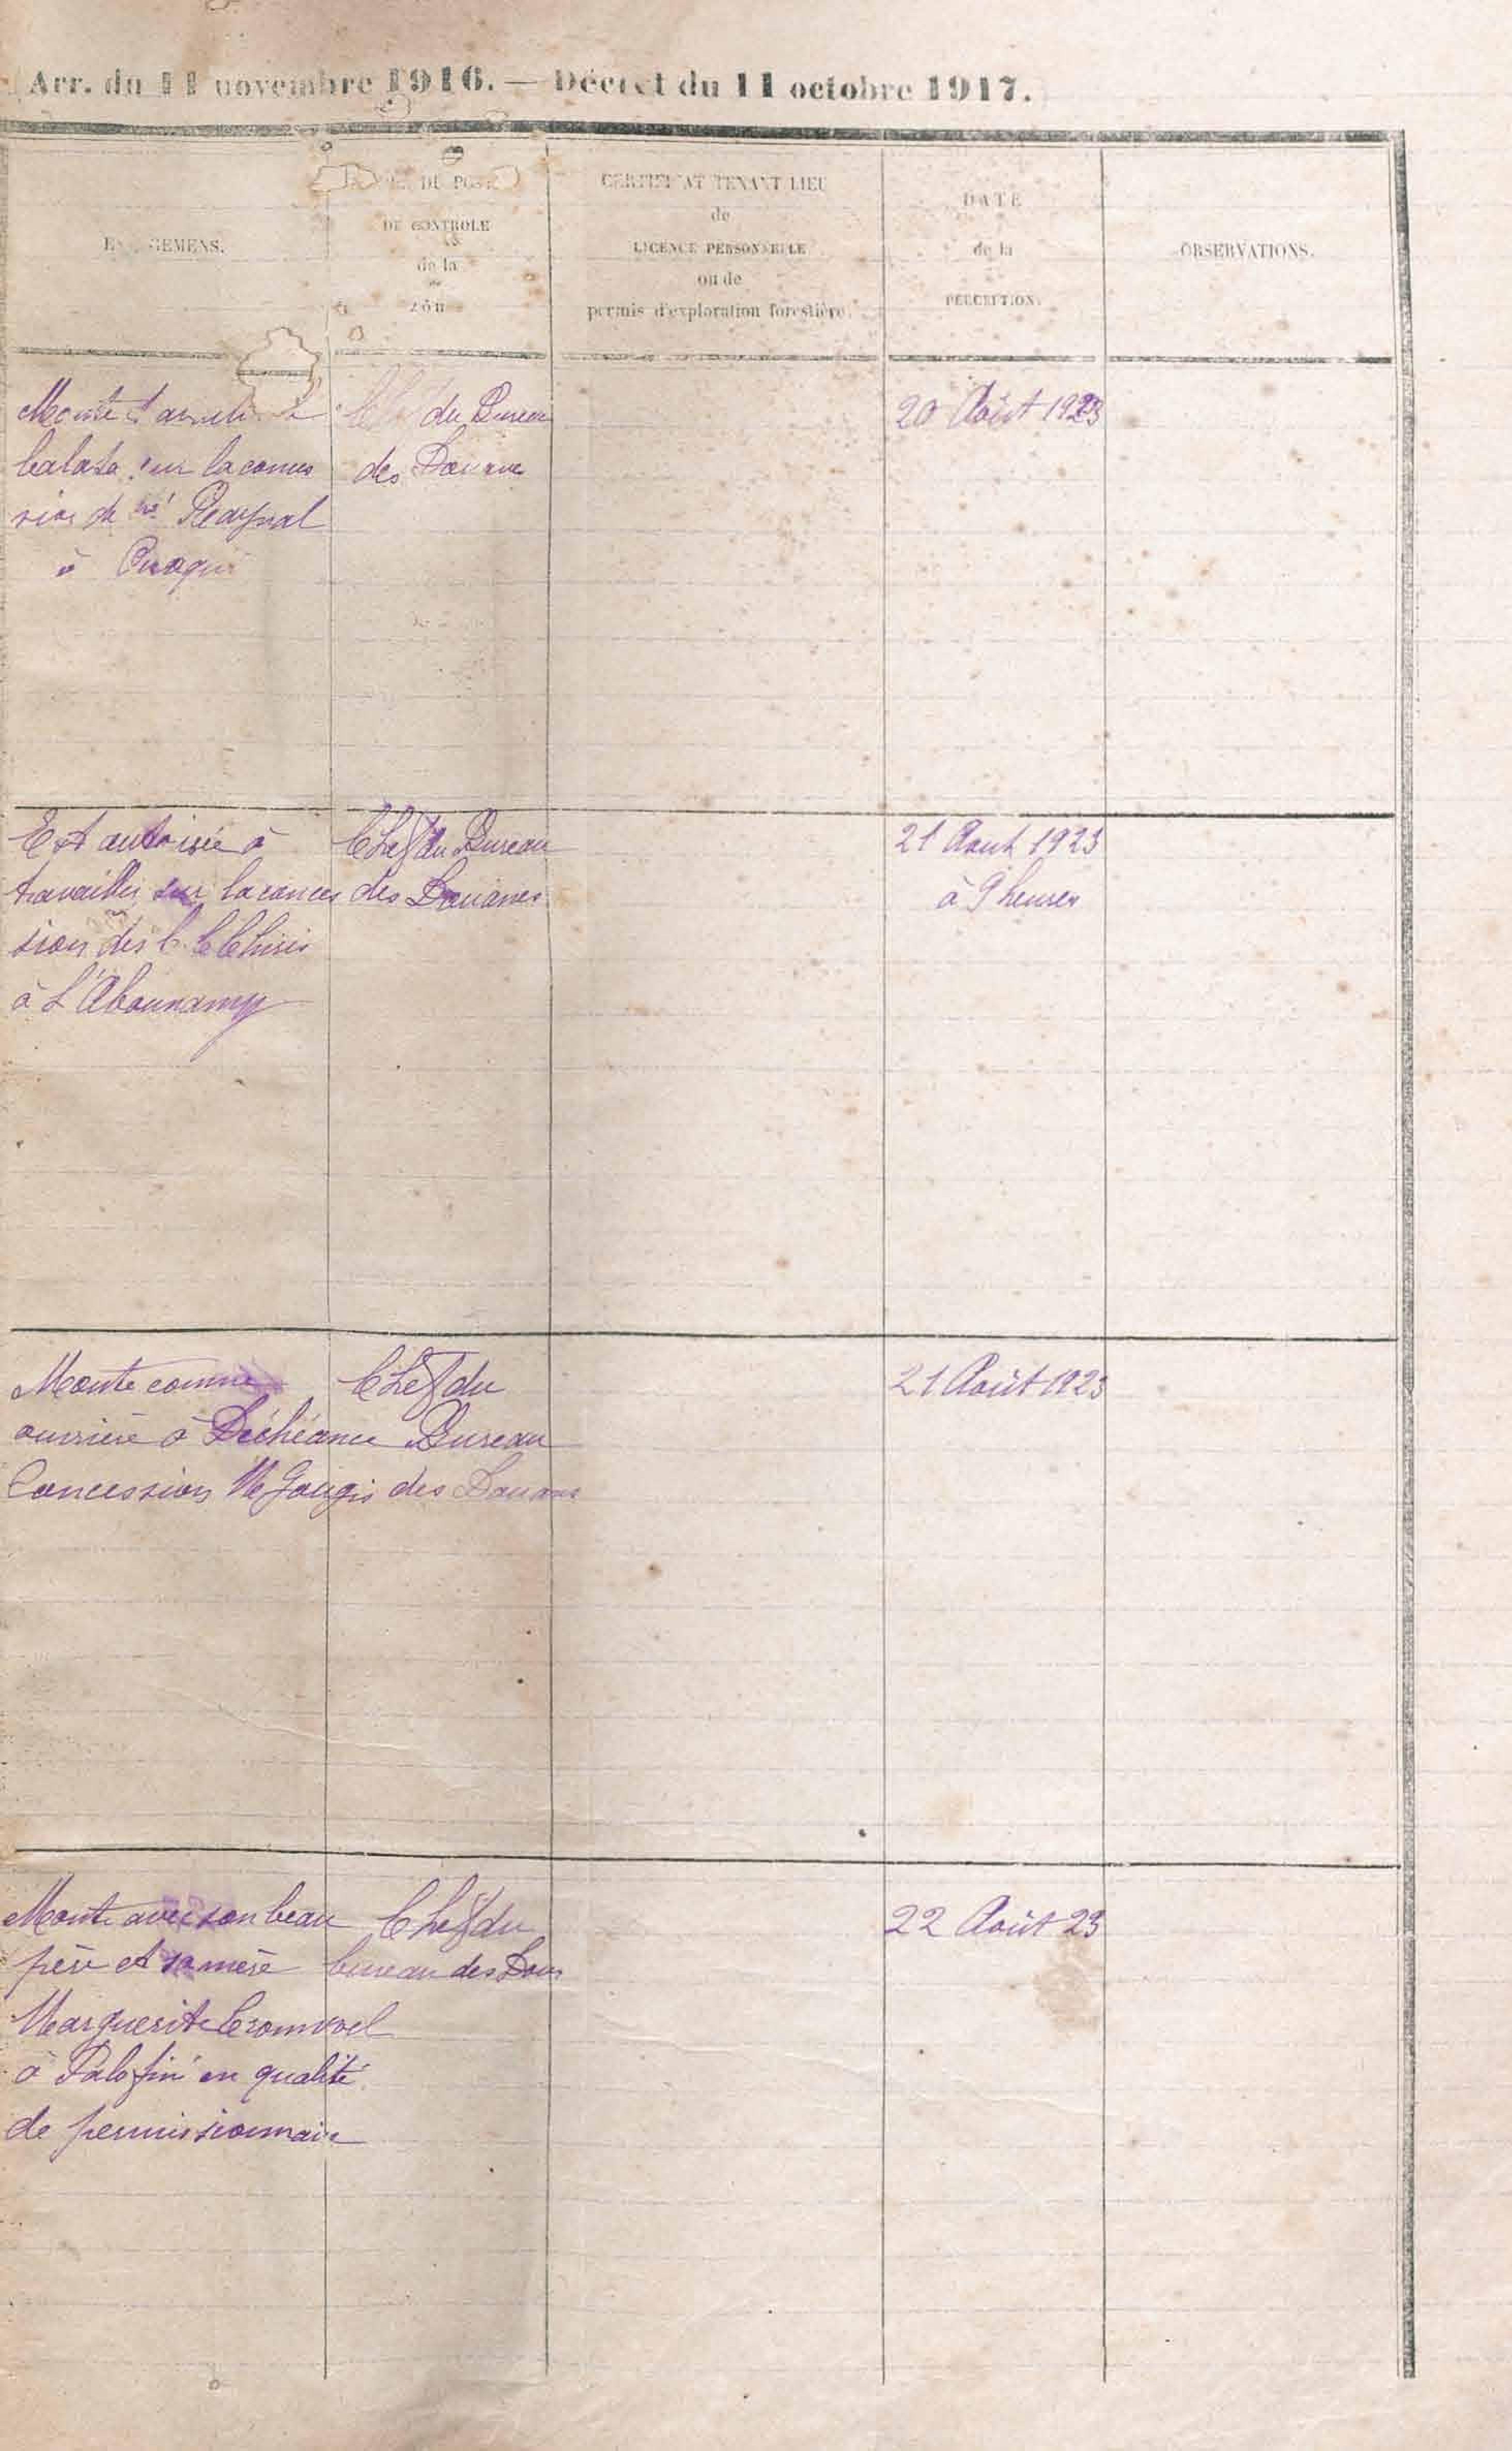 Arr. du 11 novembre 1916. — Décret du 11 octobre 1917.
DU
DE CONTROLE
de la
CERTIFICAT TENANT LIEU
de
LICENCE PERSONNELLE
ou de
permis d'exploration forestière.
DATE
de la
PERCEPTION.
OBSERVATIONS.
Monte
balata sur la conces
sion de Mr Raynal
à
du Bureau
des Douanes
20 Août 1923
Est autorisée à
travailler sur la conces
sion des
à L'Abounamy
Chef du Bureau
des Douanes
21 Aout 1923
à 9 heures
Monte comme
ouvrière à Déchéance
Concession Me Gougis
Chef du
Bureau
des Douanes
21 Août 1923
Monte avec son beau
père et sa mère
Marguerite Cromwel
à Palofini en qualité
de permissionnaire
Chef du
bureau des Doua
22 Août 23